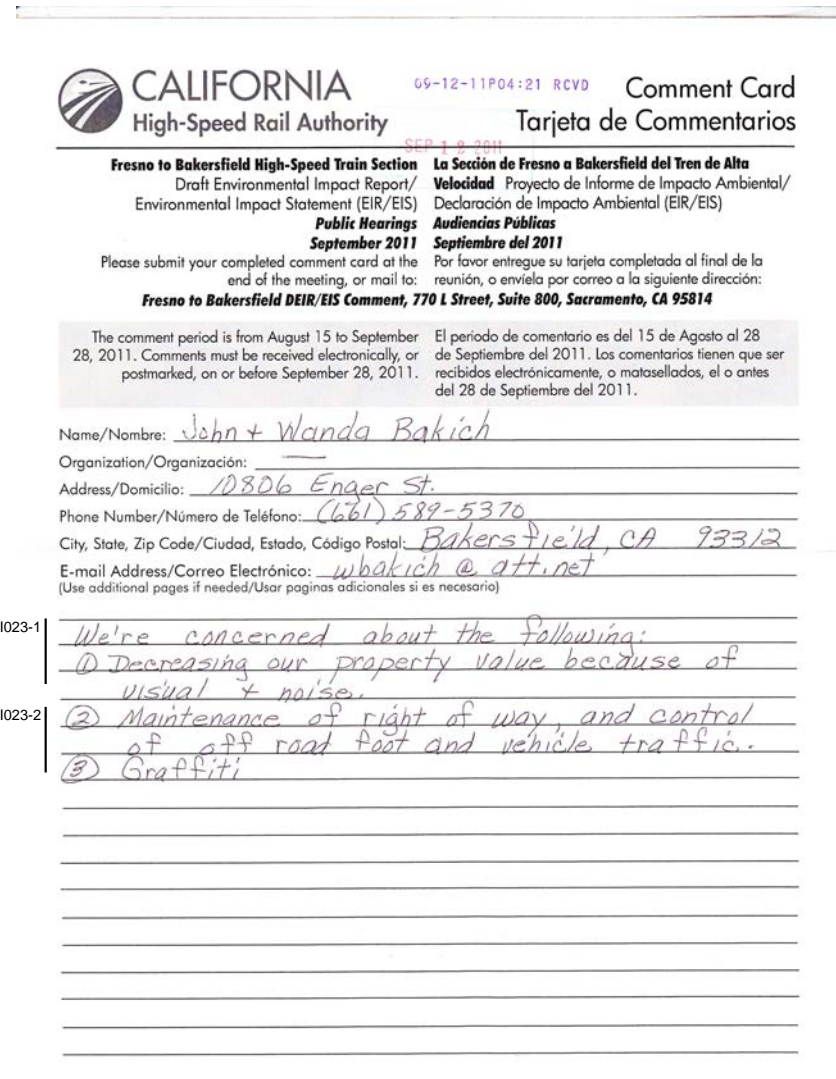 CALIFORNIA
High-Speed Rail Authority
09-12-11P04:21 RCVD
Comment Card
Tarjeta de Commentarios
SEP 12 2011
Fresno to Bakersfield High-Speed Train Section
Draft Environmental Impact Report/
Environmental Impact Statement (EIR/EIS)
Public Hearings
September 2011
Please submit your completed comment card at the
end of the meeting, or mail to:
La Sección de Fresno a Bakersfield del Tren de Alta
Velocidad Proyecto de Informe de Impacto Ambiental/
Declaración de Impacto Ambiental (EIR/EIS)
Audiencias Públicas
Septiembre del 2011
Por favor entregue su tarjeta completada al final de la
reunión, o envíela por correo a la siguiente dirección:
Fresno to Bakersfield DEIR/EIS Comment, 770 L Street, Suite 800, Sacramento, CA 95814
The comment period is from August 15 to September
28, 2011. Comments must be received electronically, or
postmarked, on or before September 28, 2011.
El periodo de comentario es del 15 de Agosto al 28
de Septiembre del 2011. Los comentarios tienen que ser
recibidos electrónicamente, o matasellados, el o antes
del 28 de Septiembre del 2011.
Name/Nombre: John + Wanda Bakich
Organization/Organización: —
Address/Domicilio: 10806 Enger St.
Phone Number/Número de Teléfono: (661) 589-5370
City, State, Zip Code/Ciudad, Estado, Código Postal: Bakersfield, CA 93312
E-mail Address/Correo Electrónico: wbakich @ att.net
(Use additional pages if needed/Usar paginas adicionales si es necesario)
I023-1
We're concerned about the following:
① Decreasing our property value because of
visual + noise.
I023-2
② Maintenance of right of way, and control
of off road foot and vehicle traffic.
③ Graffiti